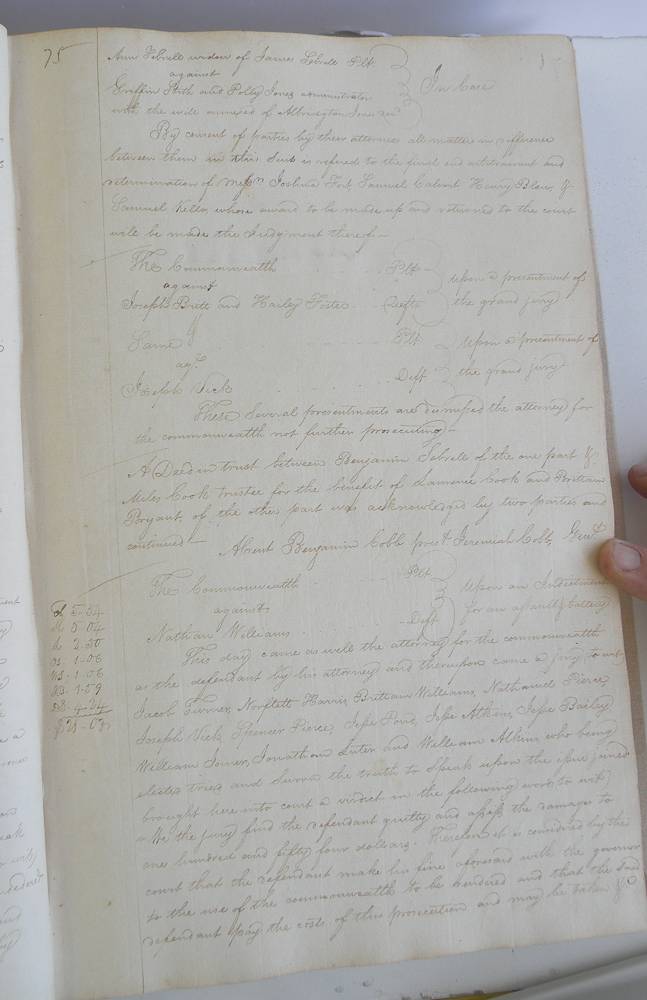 75
Ann Sebrell widow of James Sebrell Plt
against
Griffin Stith and Polly Jones administrator
with the will annexed of Albridgton Jones decd
In Case
By consent of parties by their attornies all matters in difference
between them in this Suit is refered to the final end arbitrament and
determination of Messrs Joshua Fort Samuel Calvert Henry Blow, &
Samuel Kello, whose award to be made up and returned to the court
will be made the Judgment thereof—
The Commonwealth Plt
against
Joseph Britt and Hailey Foster Defts
upon a presentment of
the grand jury
Same Plt
agt
Joseph Vick Deft
upon a presentment of
the grand jury
These Several presentments are dismissed the attorney for
the commonwealth not further prosecuting—
A Deed in trust between Benjamin Sebrell of the one part &
Miles Cook trustee for the benefit of Laurence Cook and Brittain
Bryant, of the other part was acknowledged by two parties and
continued—
Absent Benjamin Cobb prest Jeremiah Cobb, Gent
The Commonwealth Plt
against
Nathan Williams Deft
Upon an Indictment
for an assault & battery
5-34
5-04
2-50
1-06
1-06
1-59
4-24
$21-03
This day came as well the attorney for the commonwealth
as the defendant by his attorney and thereupon came a jury to wit
Jacob Turner, Norflett Harris, Brittain Williams, Nathaniel Pierce
Joseph Vick, Spencer Pierce, Jesse Pond, Jesse Atkins, Jesse Bailey
William Joiner, Jonathan Luter and William Atkins who being
elected tried and Sworn the truth to Speak upon the issue joined
brought here into court a virdict in the following words to wit
"We the jury find the defendant guilty and assess the damages to
one hundred and fifty four dollars. Therefore it is considered by the
court that the defendant make his fine aforesaid with the governor
to the use of the commonwealth to be rendered and that the said
defendant pay the costs of this prosecution and may be taken &c